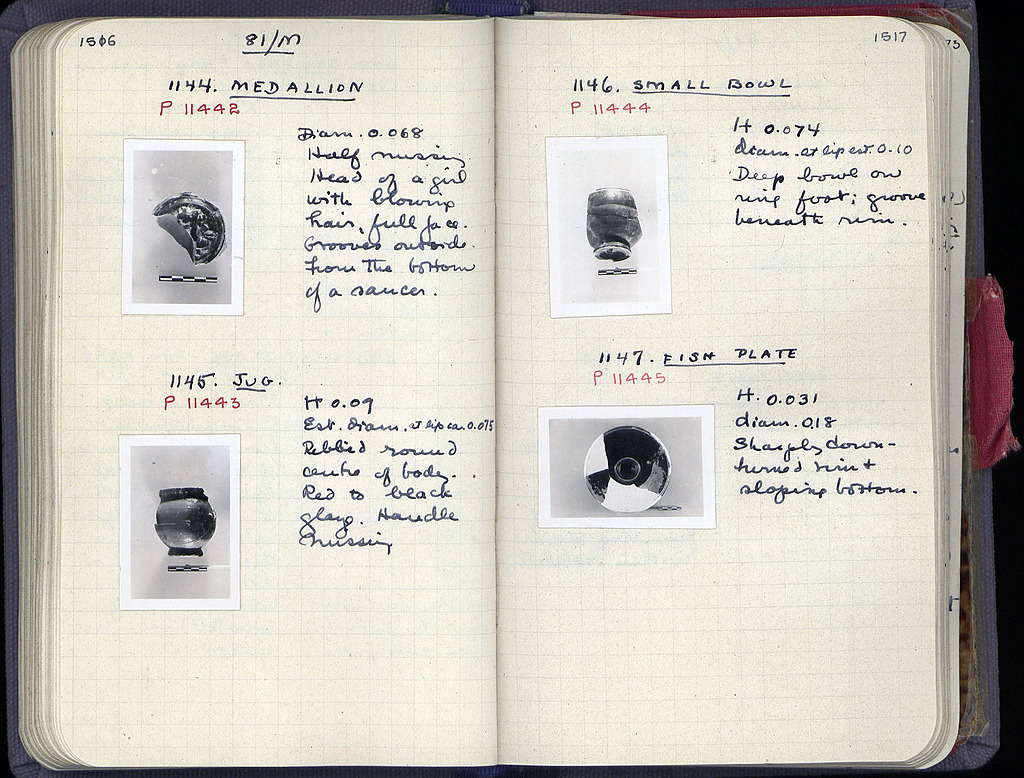 1506
81/M
1144. MEDALLION
P 11442
Diam. 0.068
Half missing
Head of a girl
with blowing
hair, full face.
Grooves outside.
from the bottom
of a saucer.
1145. JUG.
P 11443
H 0.09
Est. diam. at lip ca. 0.075
Ribbed round
centre of body.
Red to black
glaze. Handle
missing
1517
1146. SMALL BOWL
P 11444
H 0.074
diam. at lip est. 0.10
Deep bowl on
ring foot; groove
beneath rim.
1147. FISH PLATE
P 11445
H. 0.031
diam. 0.18
Sharply down-
turned rim +
sloping bottom.